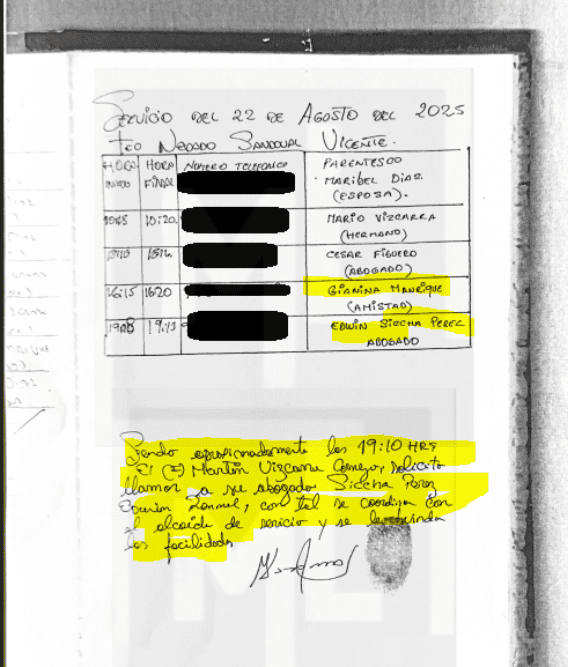 Servicio del 22 de Agosto del 2025
Tco Negado Sandoval Vicente.
HORA INICIO HORA FINAL NÚMERO TELEFÓNICO PARENTESCO
MARIBEL DIAZ.
(ESPOSA).
10:20 MARIO VIZCARRA
(HERMANO)
CESAR FIGUERO
(ABOGADO)
16:15 1620 GIANINA MANRIQUE
(AMISTAD)
1908 19:13 EDWIN SICCHA PEREZ
ABOGADO
Siendo aproximadamente las 19:10 HRS
El (I) Martín Vizcarra Cornejo, solicito
llamar a su abogado Siccha Perez
con tal se coordina con
el alcaide de servicio y se le brinda
las facilidades